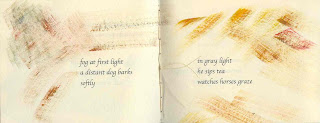 fog at first light
a distant dog barks
softly
in gray light
he sips tea
watches horses graze